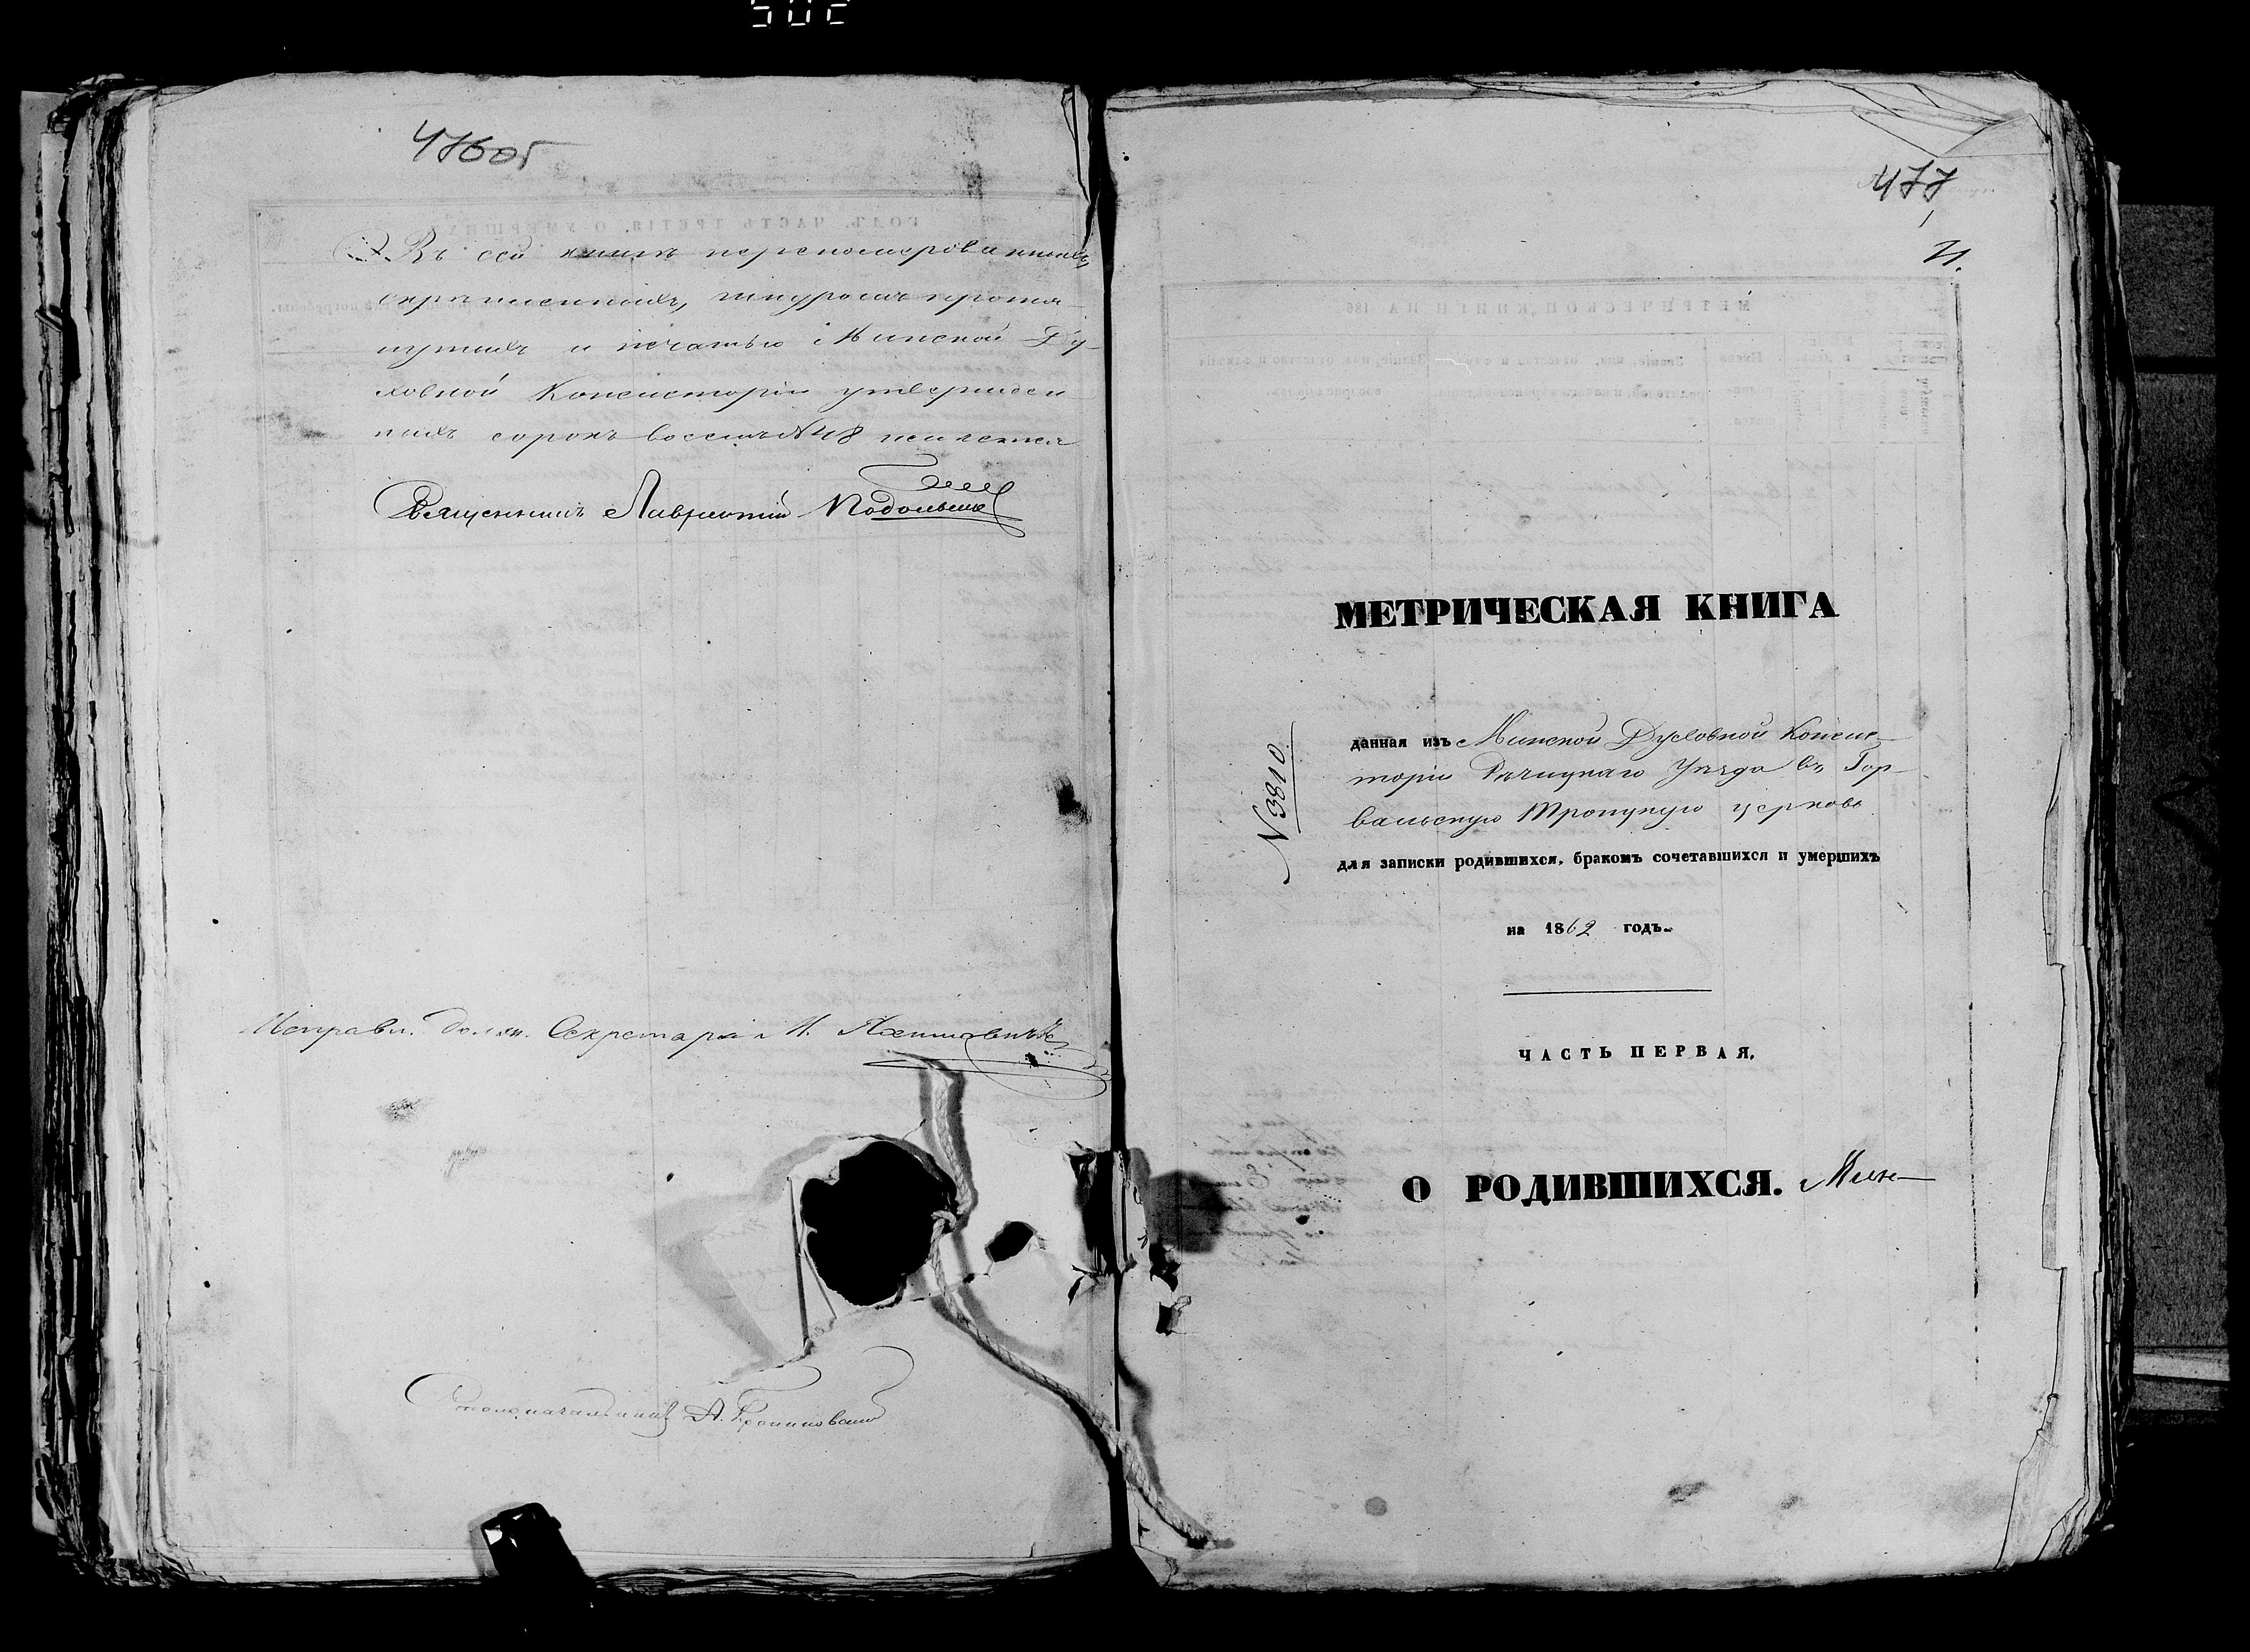 502
476об
Въ сей книгѣ переномерованныхъ,
скрѣпленныхъ, шнуромъ протя-
нутыхъ и печатью Минской Ду-
ховной Консисторіи утвержден-
ныхъ сорокъ восемь №48 полистно
Священникъ Лаврентій Подольскій
Исправл. должн. Секретаря И.
Столоначальникъ А.
477
МЕТРИЧЕСКАЯ КНИГА
№3810
данная изъ Минской Духовной Консис-
торіи Рѣчицкаго Уѣзда въ Гор-
вальскую Троицкую церковь
для записки родившихся, бракомъ сочетавшихся и умершихъ
на 1862 годъ.
ЧАСТЬ ПЕРВАЯ.
О РОДИВШИХСЯ. Мин-